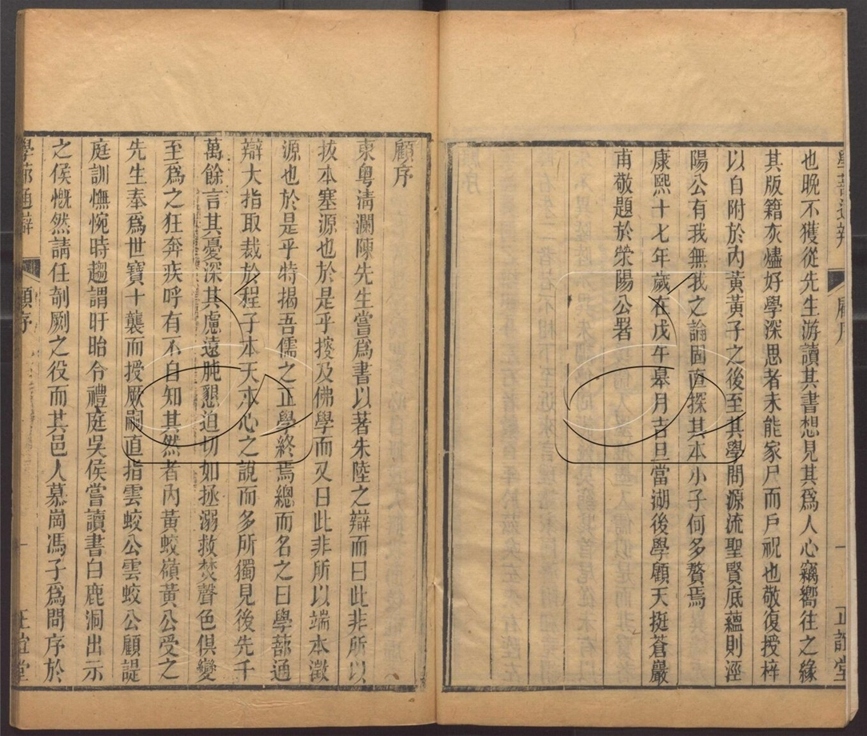 學蔀通辨　顧序　一　正誼堂
也晚不獲從先生游讀其書想見其爲人心竊嚮往之緣
其版籍灰燼好學深思者未能家尸而戶祝也敬復授梓
以自附於內黃黃子之後至其學問源流聖賢底蘊則涇
陽公有我無我之論固直探其本小子何多贅焉
康熙十七年歲在戊午皋月吉旦當湖後學顧天挺蒼巖
甫敬題於滎陽公署
顧序
東粵淸瀾陳先生嘗爲書以著朱陸之辯而曰此非所以
拔本塞源也於是乎搜及佛學而又曰此非所以端本澂
源也於是乎特揭吾儒之正學終焉總而名之曰學蔀通
辯大指取裁於程子本天本心之說而多所獨見後先千
萬餘言其憂深其慮遠肫懇迫切如拯溺救焚聲色俱變
至爲之狂奔疾呼有不自知其然者內黃蛟嶺黃公受之
先生奉爲世寶十襲而授厥嗣直指雲蛟公雲蛟公顧諟
庭訓憮惋時趨謂盱眙令禮庭吳侯嘗讀書白鹿洞出示
之侯慨然請任剞劂之役而其邑人慕崗馮子爲問序於
學蔀通辨　顧序　一　正誼堂